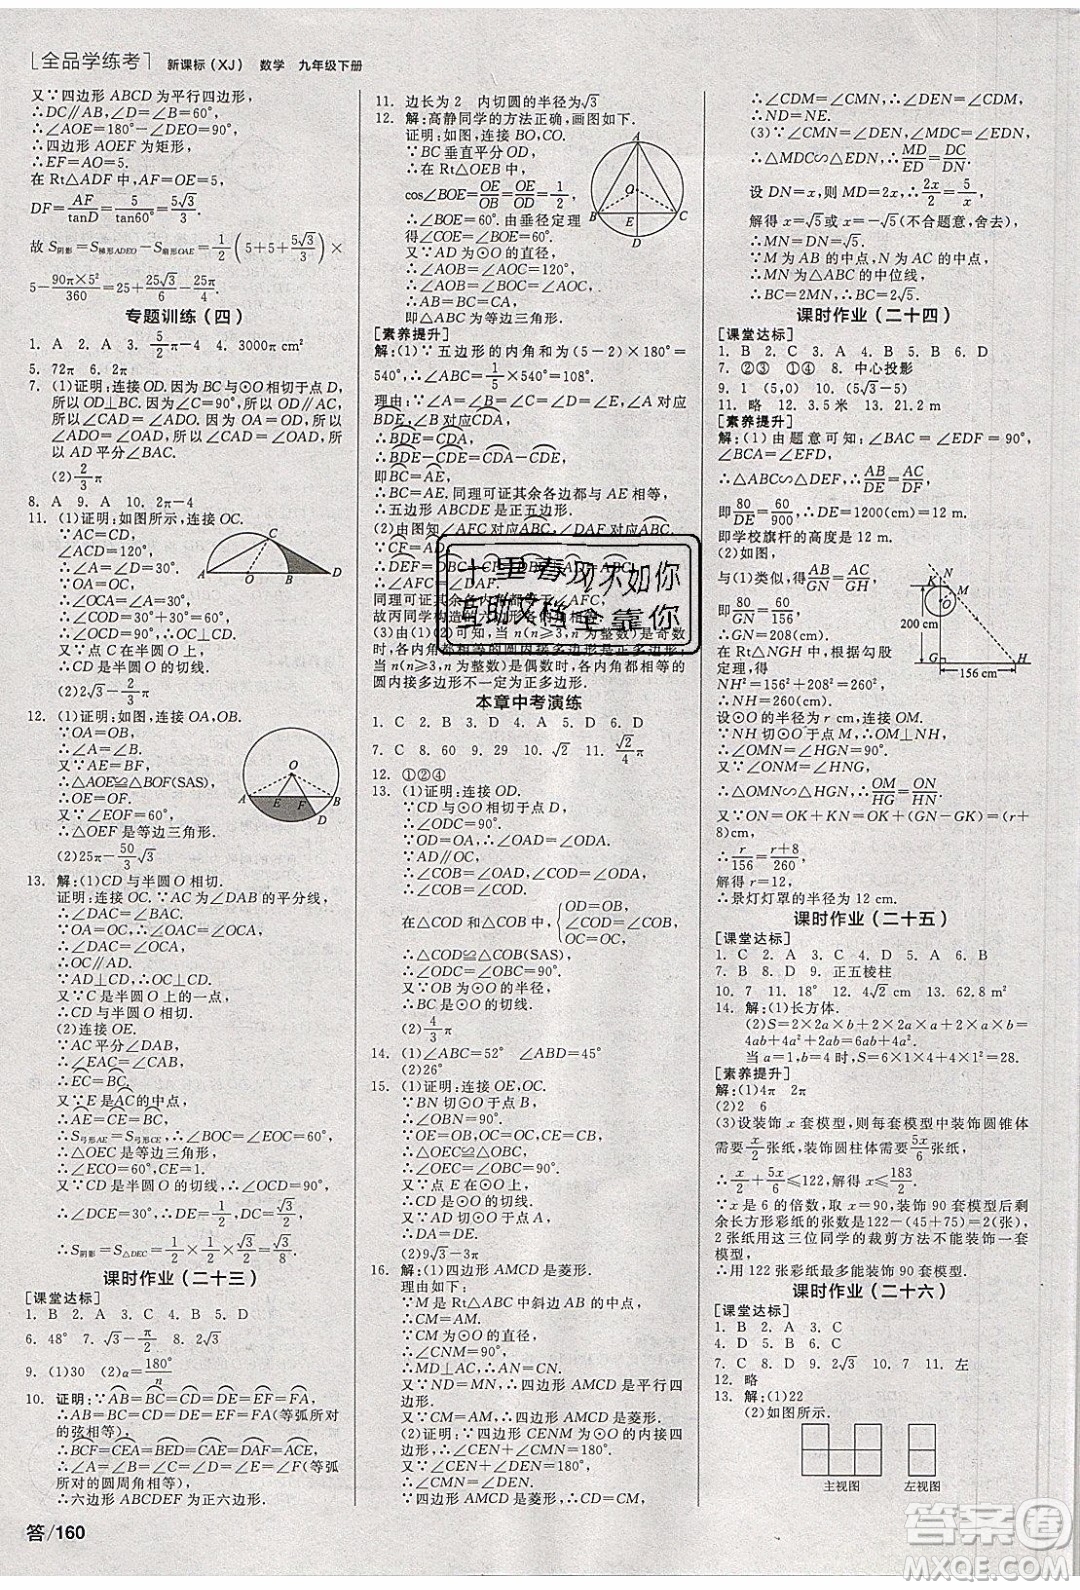 [全品学练考] 新课标(XJ) 数学 九年级下册
又∵四边形ABCD为平行四边形,
∴DC∥AB,∠D=∠B=60°,
∴∠AOE=180°-∠DEO=90°,
∴四边形AOEF为矩形,
∴EF=AO=5.
在Rt△ADF中,AF=OE=5,
DF=AF/tanD=5/tan60°=5√3/3,
故S阴影=S梯形ADEO-S扇形OAE=1/2(5+5+5√3/3)×
5-90π×5²/360=25+25√3/6-25π/4.
专题训练(四)
1. A 2. A 3. 5/2π-4 4. 3000π cm²
5. 72π 6. 2π
7. (1)证明:连接OD.因为BC与⊙O相切于点D,
所以OD⊥BC.又因为∠C=90°,所以OD∥AC,
所以∠CAD=∠ADO.又因为OA=OD,所以
∠OAD=∠ADO,所以∠CAD=∠OAD,
所以AD平分∠BAC.
(2)2/3π
8. A 9. A 10. 2π-4
11. (1)证明:如图所示,连接OC.
∵AC=CD,
∠ACD=120°,
∴∠A=∠D=30°.
∵OA=OC,
∴∠ACO=∠A=30°,
∴∠COD=30°+30°=60°,
∴∠OCD=90°,∴OC⊥CD.
又∵点C在⊙O上,
∴CD是⊙O的切线.
(2)2√3-2/3π
12. (1)证明:如图,连接OA,OB.
∵OA=OB,
∴∠A=∠B.
又∵AE=BF,
∴△AOE≌△BOF(SAS),
∴OE=OF.
又∵∠EOF=60°,
∴△OEF是等边三角形.
(2)25π-50/3√3
13. 解:(1)CD与半圆O相切.
证明:连接OC.∵AC为∠DAB的平分线,
∴∠DAC=∠BAC.
∵OA=OC,∴∠OAC=∠OCA,
∴∠DAC=∠OCA,
∴OC∥AD.
∵AD⊥CD,∴OC⊥CD.
又∵C是半圆O上的一点,
∴CD与半圆O相切.
(2)连接OE.
∵AC平分∠DAB,
∴∠EAC=∠CAB,
∴EC=BC.
又∵E是AC的中点,
∴AE=CE=BC,
∴S弓形AE=S弓形CE,∠BOC=∠EOC=60°,
∴△OEC是等边三角形,
∴∠ECO=60°,CE=1.
又∵CD是半圆O的切线,∴∠OCD=90°,
∴∠DCE=30°,∴DE=1/2,DC=√3/2,
∴S阴影=S△DEC=1/2×1/2×√3/2=√3/8.
课时作业(二十三)
[课堂达标]
1. B 2. A 3. C 4. B 5. D
6. 48° 7. √3-π/2 8. 2√3
9. (1)30 (2)α=180°/n
10. 证明:∵AB=BC=CD=DE=EF=FA,
∴AB=BC=CD=DE=EF=FA(等弧所对
的弦相等),
∴BCF=CEA=BED=CFA=DAB=EBC,
∴∠A=∠B=∠C=∠D=∠E=∠F(等弧所对
的圆周角相等),
∴六边形ABCDEF为正六边形.
答/160
11. 边长为2 内切圆的半径为√3
12. 解:高静同学的方法正确,画图如下.
证明:如图,连接BO,CO.
∵BC垂直平分OD,
∴在Rt△OEB中,
cos∠BOE=OE/OB=OE/OD=1/2,
∴∠BOE=60°.
∴由垂径定理
得∠COE=∠BOE=60°.
又∵AD为⊙O的直径,
∴∠AOB=∠AOC=120°,
∴∠AOB=∠BOC=∠AOC,
∴AB=BC=CA,
即△ABC为等边三角形.
[素养提升]
解:(1)∵五边形的内角和为(5-2)×180°=
540°,∴1/5×540°=108°.
理由:∵∠A=∠B=∠C=∠D=∠E,∠A对应
BDE,∠B对应CDA,
∴BDE=CDA,
∴BDE-CDE=CDA-CDE,
即BC=AE,
∴BC=AE.同理可得其余各边都与AE相等,
∴五边形ABCDE是正五边形.
(2)由图知∠AFC对应ABC,∠DAF对应
∵CF=AD,
同理可得其余各角都等于∠AFC,
故丙同学构造的六边形各内角相等.
(3)由(1)(2)可知,当n(n≥3,n为整数)是奇数
时,各内角都相等的圆内接多边形是正多边形;
当n(n≥3,n为整数)是偶数时,各内角都相等的
圆内接多边形不一定为正多边形.
本章中考演练
1. C 2. B 3. D 4. A 5. D 6. D
7. C 8. 60 9. 29 10. √2 11. √2/4π
12. ①②④
13. (1)证明:连接OD.
∵CD与⊙O相切于点D,
∴∠ODC=90°.
∵OD=OA,∴∠OAD=∠ODA.
∵AD∥OC,
∴∠COB=∠OAD,∠COD=∠ODA,
∴∠COB=∠COD.
在△COD和△COB中,{OD=OB, ∠COD=∠COB, OC=OC,
∴△COD≌△COB,
∴∠ODC=∠OBC=90°.
又∵OB为⊙O的半径,
∴BC是⊙O的切线.
(2)4/3π
14. (1)∠ABC=52° ∠ABD=45°
(2)26°
15. (1)证明:连接OE,OC.
∵BN切⊙O于点B,
∴∠OBN=90°.
∵OE=OB,OC=OC,CE=CB,
∴△OEC≌△OBC(SSS),
∴∠OEC=∠OBC=90°.
又∵点E在⊙O上,
∴CD是⊙O的切线.
(2)9√3-3π
16. 解:(1)四边形AMCD是菱形.
理由如下:
∵M是Rt△ABC中斜边AB的中点,
∴CM=AM.
∵CM为⊙O的直径,
∴∠CNM=90°,∴MD⊥AC,
∴AN=CN.
又∵ND=MN,
∴四边形AMCD是平行四边形.
又∵CM=AM,∴四边形AMCD是菱形.
(2)∵四边形CENM为⊙O的内接四边形,
∴∠CEN+∠CMN=180°.
又∵∠CEN+∠DEN=180°,
∴∠CMN=∠DEN.
∵四边形AMCD是菱形,∴CD=CM,
∴∠CDM=∠CMN,∴∠DEN=∠CDM,
∴ND=NE.
(3)∵∠CMN=∠DEN,∠MDC=∠EDN,
∴△MDC∽△EDN,∴MD/ED=DC/DN.
设DN=x,则MD=2x,∴2x/2=5/x,
解得x=√5或x=-√5(不合题意,舍去),
∴MN=DN=√5.
∵M为AB的中点,N为AC的中点,
∴MN为△ABC的中位线,
∴BC=2MN,∴BC=2√5.
课时作业(二十四)
[课堂达标]
1. B 2. C 3. B 4. D 5. C 6. B
7. ② ①③④ 8. 中心投影
9. 1 (5,0) 10. (5√3-5)
11. 略 12. 3.5米 13. 21.2 m
[素养提升]
解:(1)由题意可知:∠BAC=∠EDF=90°,
∠BCA=∠EFD,
∴△ABC∽△DEF,∴AB/DE=AC/DF,
即80/DE=60/900,∴DE=1200(cm).
即学校旗杆的高度是12 m.
(2)如图,
与(1)类似,得AB/GN=AC/GH,
即80/GN=60/156,
∴GN=208(cm).
在Rt△NGH中,根据勾股
定理,得
NH²=156²+208²=260²,
∴NH=260(cm).
设⊙O的半径为r cm,连接OM.
∵NH切⊙O于点M,∴OM⊥NH,
∴∠OMN=∠HGN=90°.
又∵∠ONM=∠HNG,
∴△OMN∽△HGN,∴OM/HG=ON/HN.
又∵ON=OK+KN=OK+(GN-GK)=(r+
8)cm,
∴r/156=(r+8)/260,
解得r=12.
∴景灯灯罩的半径为12 cm.
课时作业(二十五)
[课堂达标]
1. C 2. B 3. C 4. D 5. A 6. B
7. B 8. D 9. 正五棱柱
10. 7 11. 18° 12. 4√2 cm 13. 62.8 m²
14. 解:(1)长方体.
(2)S=2×2a×b+2×2a×b+2×a×2a=
4ab+4ab+4a²=8ab+4a².
当a=1,b=3时,S=8×1×3+4×1²=28.
[素养提升]
解:(1)4π 2π
(2)2 6
(3)设装饰x套模型,则每套模型中装饰圆锥体
需要x/2张纸,装饰圆柱体需要5x/6张纸,
∴x/2+5x/6≤122,解得x≤183/2.
∵x是6的倍数,取x=90,装饰90套模型后剩
余长方形彩纸的张数是122-(45+75)=2(张),
2张纸用这三位同学的裁剪方法不能装饰一套
模型,
∴用122张彩纸最多能装饰90套模型.
课时作业(二十六)
[课堂达标]
1. B 2. B 3. C
4. B 5. A 6. C
7. C 8. B 9. 2√3 10. 11 11. 左
12. 略
13. 解:(1)22
(2)如图所示.
主视图 左视图
十里春风不如你
互助文档全靠你
答案圈
MXQE.COM